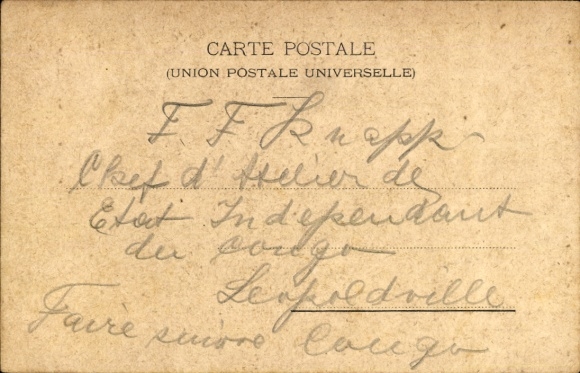 CARTE POSTALE
(UNION POSTALE UNIVERSELLE)
F F Knapp
Chef d'Atelier de
Etat Independant
du Congo
Leopoldville
Faire suivre Congo